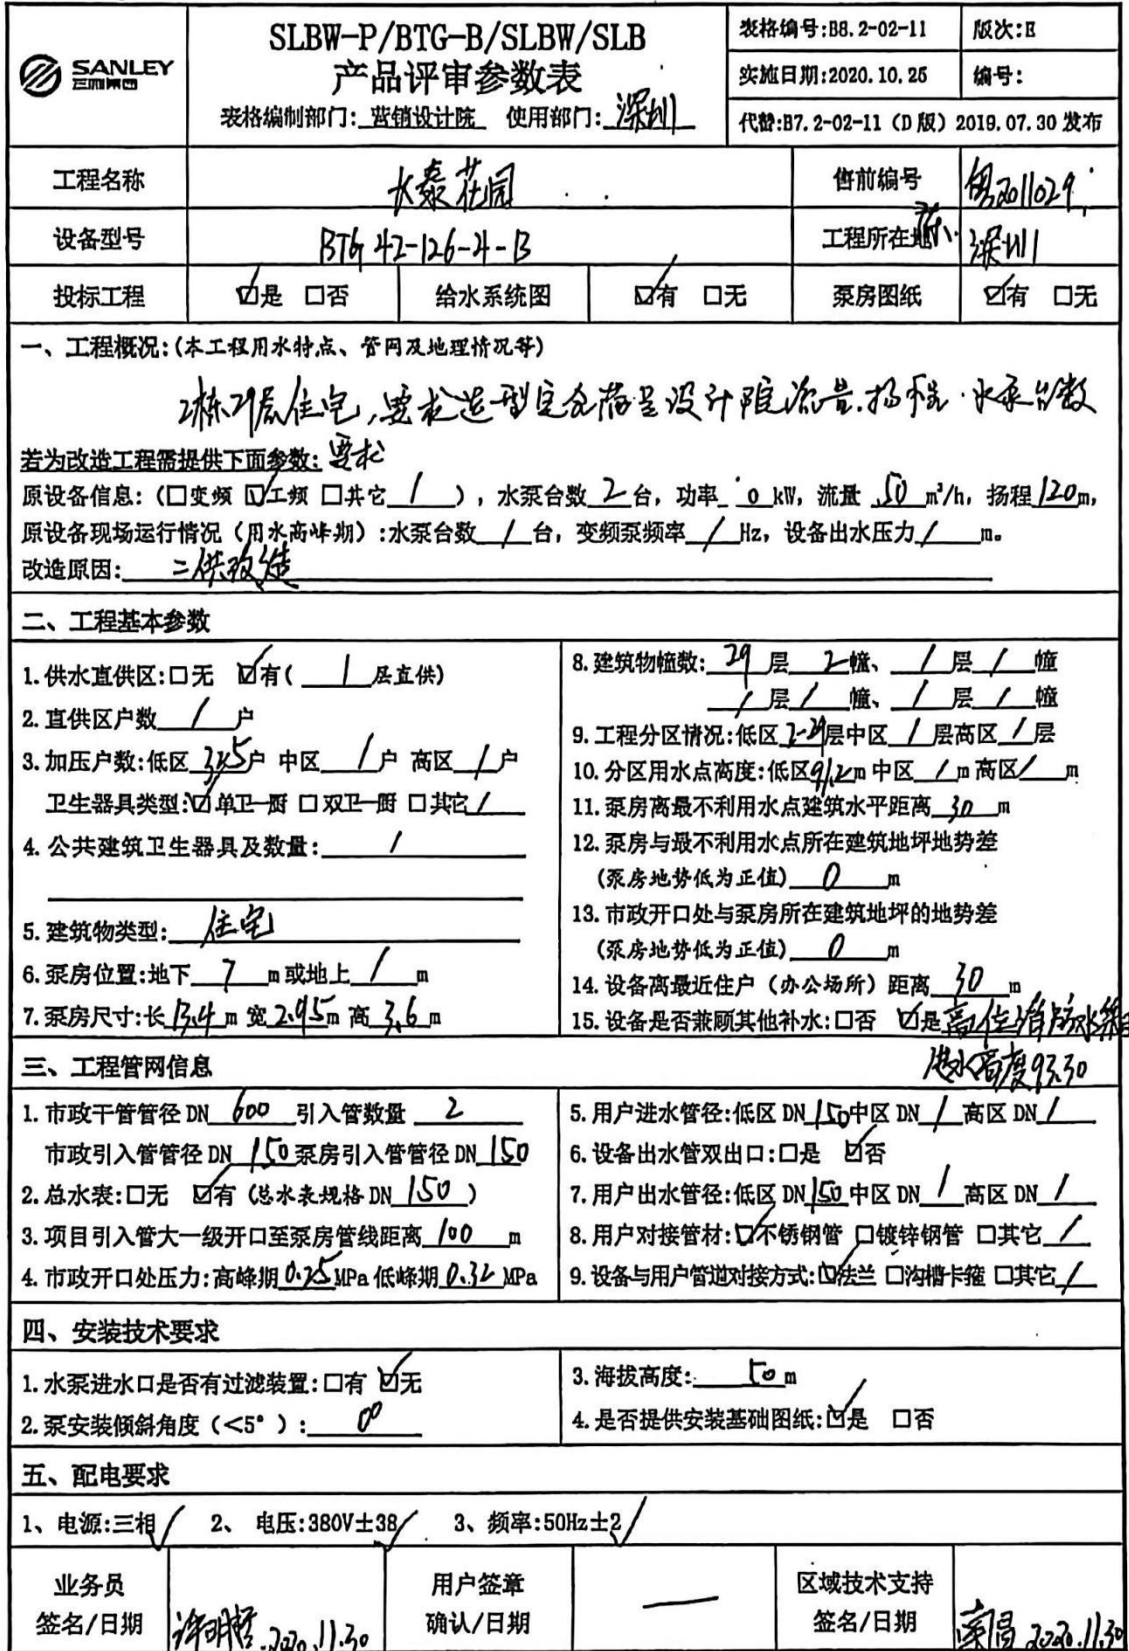 SANLEY
三利集团
SLBW-P/BTG-B/SLBW/SLB
产品评审参数表
表格编制部门:营销设计院 使用部门:深圳
表格编号:B8.2-02-11 版次:E
实施日期:2020.10.25 编号:
代替:B7.2-02-11（D版）2019.07.30 发布
工程名称 泰花园 售前编号 2011029
设备型号 BTG 42-126-4-B 工程所在地 深圳
投标工程 ☑是 □否 给水系统图 ☑有 □无 泵房图纸 ☑有 □无
一、工程概况:(本工程用水特点、管网及地理情况等)
2栋29层住宅,要求选型完全满足设计院流量.扬程.水泵台数
要求
若为改造工程需提供下面参数:
原设备信息:（□变频 ☑工频 □其它 / ），水泵台数 2 台，功率 kW，流量 50 m³/h，扬程 120 m，
原设备现场运行情况（用水高峰期）:水泵台数 / 台，变频泵频率 / Hz，设备出水压力 / m。
改造原因: 二供改造
二、工程基本参数
1.供水直供区:□无 ☑有( 1 层直供)
2.直供区户数 / 户
3.加压户数:低区 户 中区 / 户 高区 / 户
卫生器具类型:☑单卫一厨 □双卫一厨 □其它 /
4.公共建筑卫生器具及数量: /
5.建筑物类型: 住宅
6.泵房位置:地下 7 m或地上 / m
7.泵房尺寸:长 13.4 m 宽 2.95 m 高 3.6 m
8.建筑物幢数: 29 层 2 幢、 / 层 / 幢
/ 层 / 幢、 / 层 / 幢
9.工程分区情况:低区 2-29 层中区 / 层高区 / 层
10.分区用水点高度:低区 91.2 m 中区 / m 高区 / m
11.泵房离最不利用水点建筑水平距离 30 m
12.泵房与最不利用水点所在建筑地坪地势差
(泵房地势低为正值) 0 m
13.市政开口处与泵房所在建筑地坪的地势差
(泵房地势低为正值) 0 m
14.设备离最近住户（办公场所）距离 30 m
15.设备是否兼顾其他补水:□否 ☑是 高位消防水箱
进水高度93.30
三、工程管网信息
1.市政干管管径 DN 600 引入管数量 2
市政引入管管径 DN 150 泵房引入管管径 DN 150
2.总水表:□无 ☑有（总水表规格 DN 150 ）
3.项目引入管大一级开口至泵房管线距离 100 m
4.市政开口处压力:高峰期 0.25 MPa 低峰期 0.32 MPa
5.用户进水管径:低区 DN 150 中区 DN / 高区 DN /
6.设备出水管双出口:□是 ☑否
7.用户出水管径:低区 DN 150 中区 DN / 高区 DN /
8.用户对接管材:☑不锈钢管 □镀锌钢管 □其它 /
9.设备与用户管道对接方式:☑法兰 □沟槽卡箍 □其它 /
四、安装技术要求
1.水泵进水口是否有过滤装置:□有 ☑无
2.泵安装倾斜角度（＜5°）: 0°
3.海拔高度: 50 m
4.是否提供安装基础图纸:☑是 □否
五、配电要求
1、电源:三相✓ 2、电压:380V±38✓ 3、频率:50Hz±2✓
业务员
签名/日期
许明哲 2020.11.30
用户签章
确认/日期
—
区域技术支持
签名/日期
2020.11.30